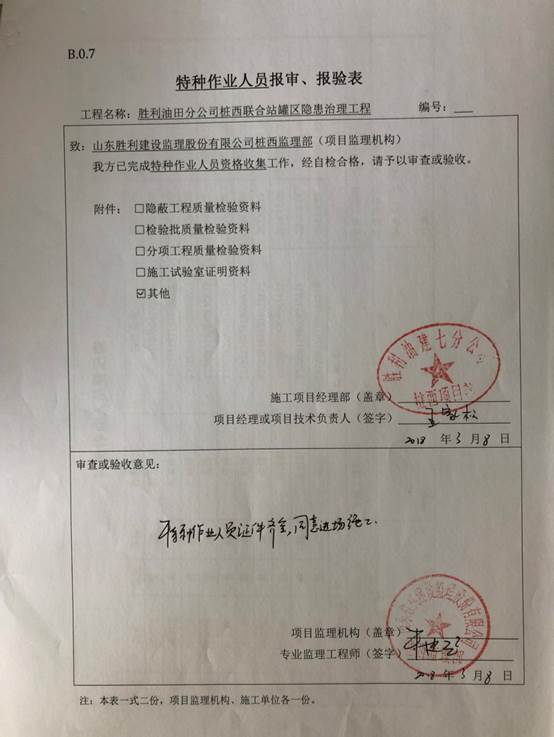 B.0.7
特种作业人员报审、报验表
工程名称：胜利油田分公司桩西联合站罐区隐患治理工程 编号：
致：山东胜利建设监理股份有限公司桩西监理部（项目监理机构）
我方已完成特种作业人员资格收集工作，经自检合格，请予以审查或验收。
附件：□隐蔽工程质量检验资料
□检验批质量检验资料
□分项工程质量检验资料
□施工试验室证明资料
☑其他
胜利油建七分公司
桩西项目部
施工项目经理部（盖章）
项目经理或项目技术负责人（签字）
2018 年 3 月 8 日
审查或验收意见：
特种作业人员证件齐全，同意进场施工.
项目监理机构（盖章）
专业监理工程师（签字）
2018 年 3 月 8 日
注：本表一式二份，项目监理机构、施工单位各一份。